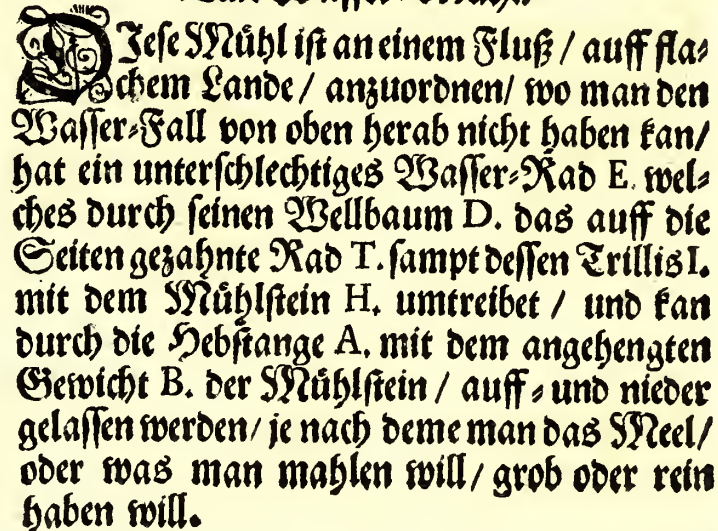 DJese Mühl ist an einem Fluß / auff fla⸗
chem Lande / anzuordnen / wo man den
Wasser⸗Fall von oben herab nicht haben kan /
hat ein unterschlechtiges Wasser⸗Rad E. wel⸗
ches durch seinen Wellbaum D. das auff die
Seiten gezahnte Rad T. sampt dessen Trillis I.
mit dem Mühlstein H. umtreibet / und kan
durch die Hebstange A. mit dem angehengten
Gewicht B. der Mühlstein / auff⸗ und nieder
gelassen werden / je nach deme man das Meel /
oder was man mahlen will / grob oder rein
haben will.